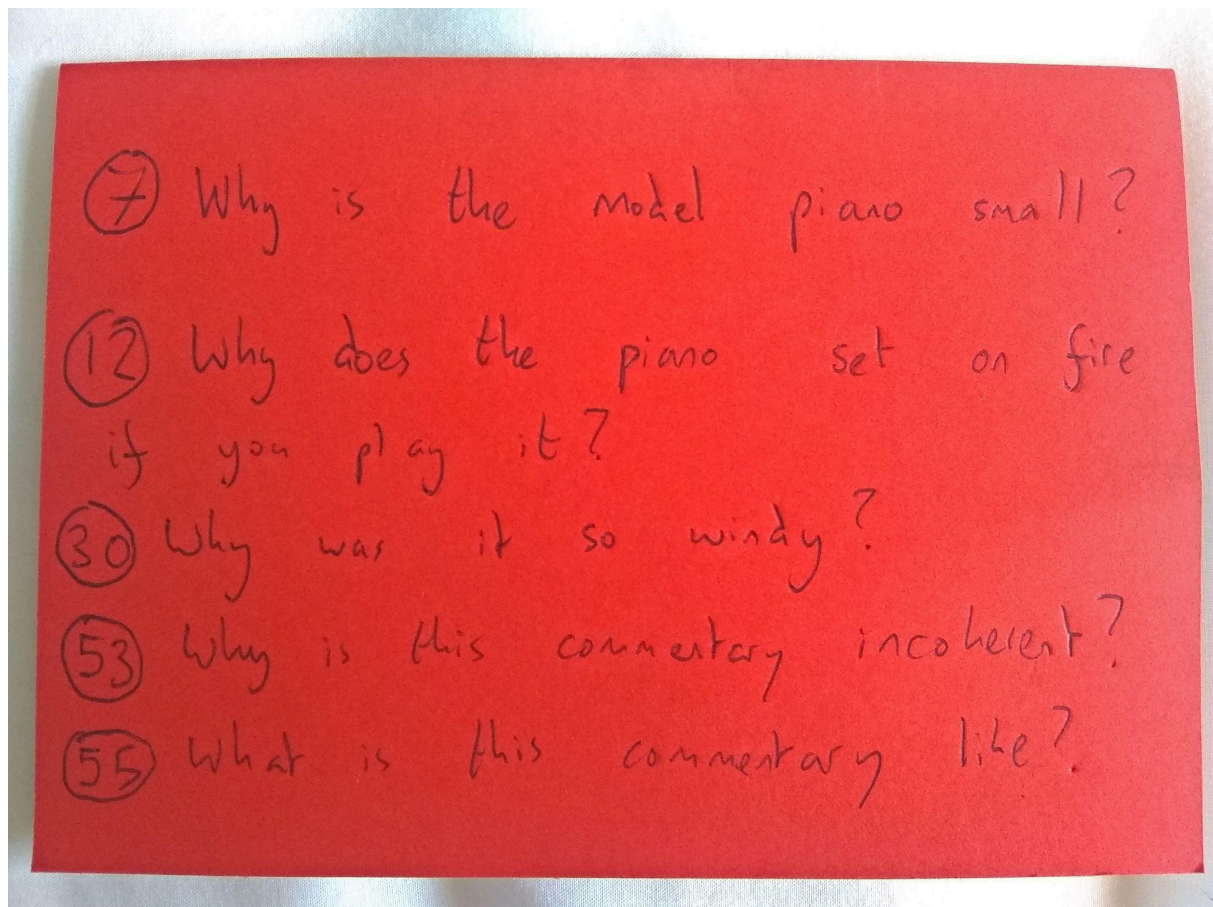 7 Why is the model piano small?
12 Why does the piano set on fire
if you play it?
30 Why was it so windy?
53 Why is this commentary incoherent?
55 What is this commentary like?